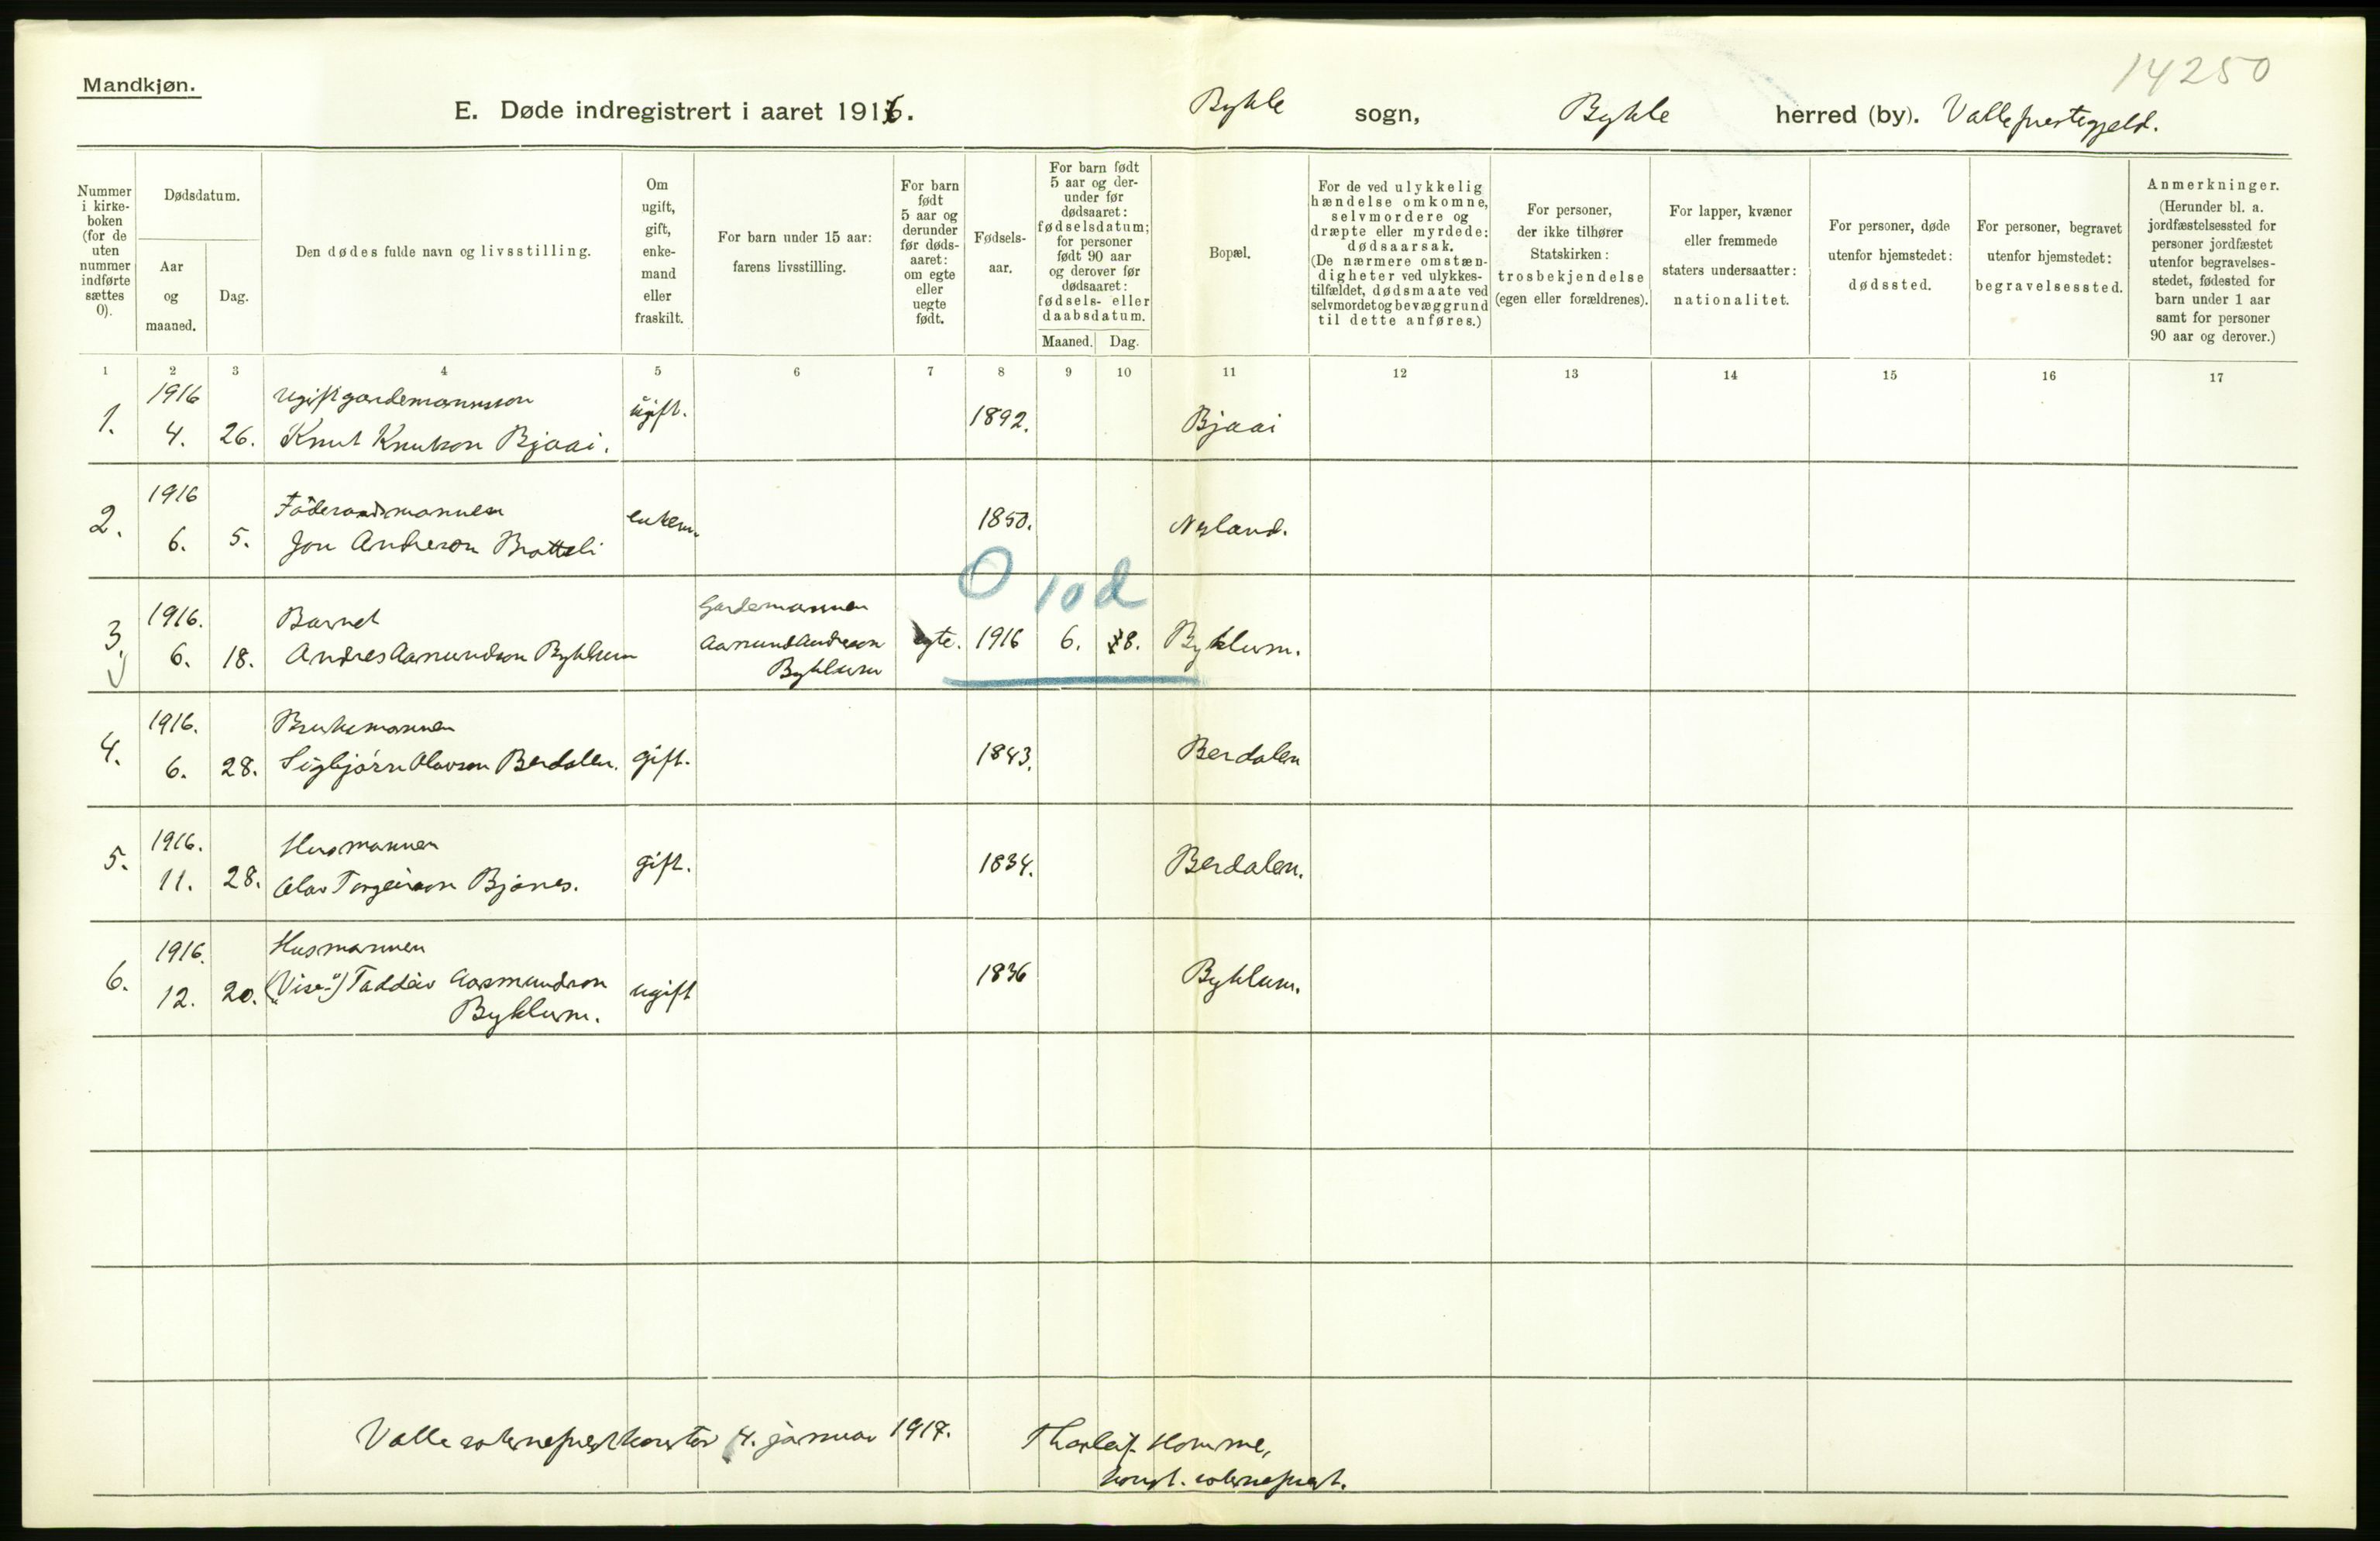 14250
Mandkjøn.
E. Døde indregistrert i aaret 1916. Bykle sogn, Bykle herred (by). Valle prestegjeld.
Nummer i kirkeboken (for de uten nummer indførte sættes 0).
Dødsdatum.
Aar og maaned.
Dag.
Den dødes fulde navn og livsstilling.
Om ugift, gift, enkemand eller fraskilt.
For barn under 15 aar: farens livsstilling.
For barn født 5 aar og derunder før dødsaaret: om egte eller uegte født.
Fødselsaar.
For barn født 5 aar og derunder før dødsaaret: fødselsdatum; for personer født 90 aar og derover før dødsaaret: fødsels- eller daabsdatum.
Maaned. Dag.
Bopæl.
For de ved ulykkelig hændelse omkomne, selvmordere og dræpte eller myrdede: dødsaarsak. (De nærmere omstændigheter ved ulykkestilfældet, dødsmaate ved selvmordet og bevæggrund til dette anføres.)
For personer, der ikke tilhører Statskirken: trosbekjendelse (egen eller forældrenes).
For lapper, kvæner eller fremmede staters undersaatter: nationalitet.
For personer, døde utenfor hjemstedet: dødssted.
For personer, begravet utenfor hjemstedet: begravelsessted.
Anmerkninger. (Herunder bl. a. jordfæstelsessted for personer jordfæstet utenfor begravelsesstedet, fødested for barn under 1 aar samt for personer 90 aar og derover.)
1 2 3 4 5 6 7 8 9 10 11 12 13 14 15 16 17
1916 Ugift gardemannsson
1. 4. 26. Knut Knutson Bjaai. ugift. 1892. Bjaai
1916 Föderaadsmannen
2. 6. 5. Jon Andreson Bratteli enkem. 1850. Nesland.
0 10 d
1916. Barnet Gardemannen
3. 6. 18. Andres Aamundson Byklum Aamund Andreson Byklum egte. 1916 6. 8. Byklum.
1916. Bruksmannen
4. 6. 28. Sigbjørn Olavson Berdalen. gift. 1843. Berdalen
1916. Husmannen
5. 11. 28. Olav Torgeirson Bjønes. gift. 1834. Berdalen.
1916. Husmannen
6. 12. 20. ("Vise-") Taddeiv Aasmundson ugift 1836 Byklum.
Byklum.
Valle sokneprestkontor 4. januar 1917. Tharleif Homme,
konst. sokneprest.